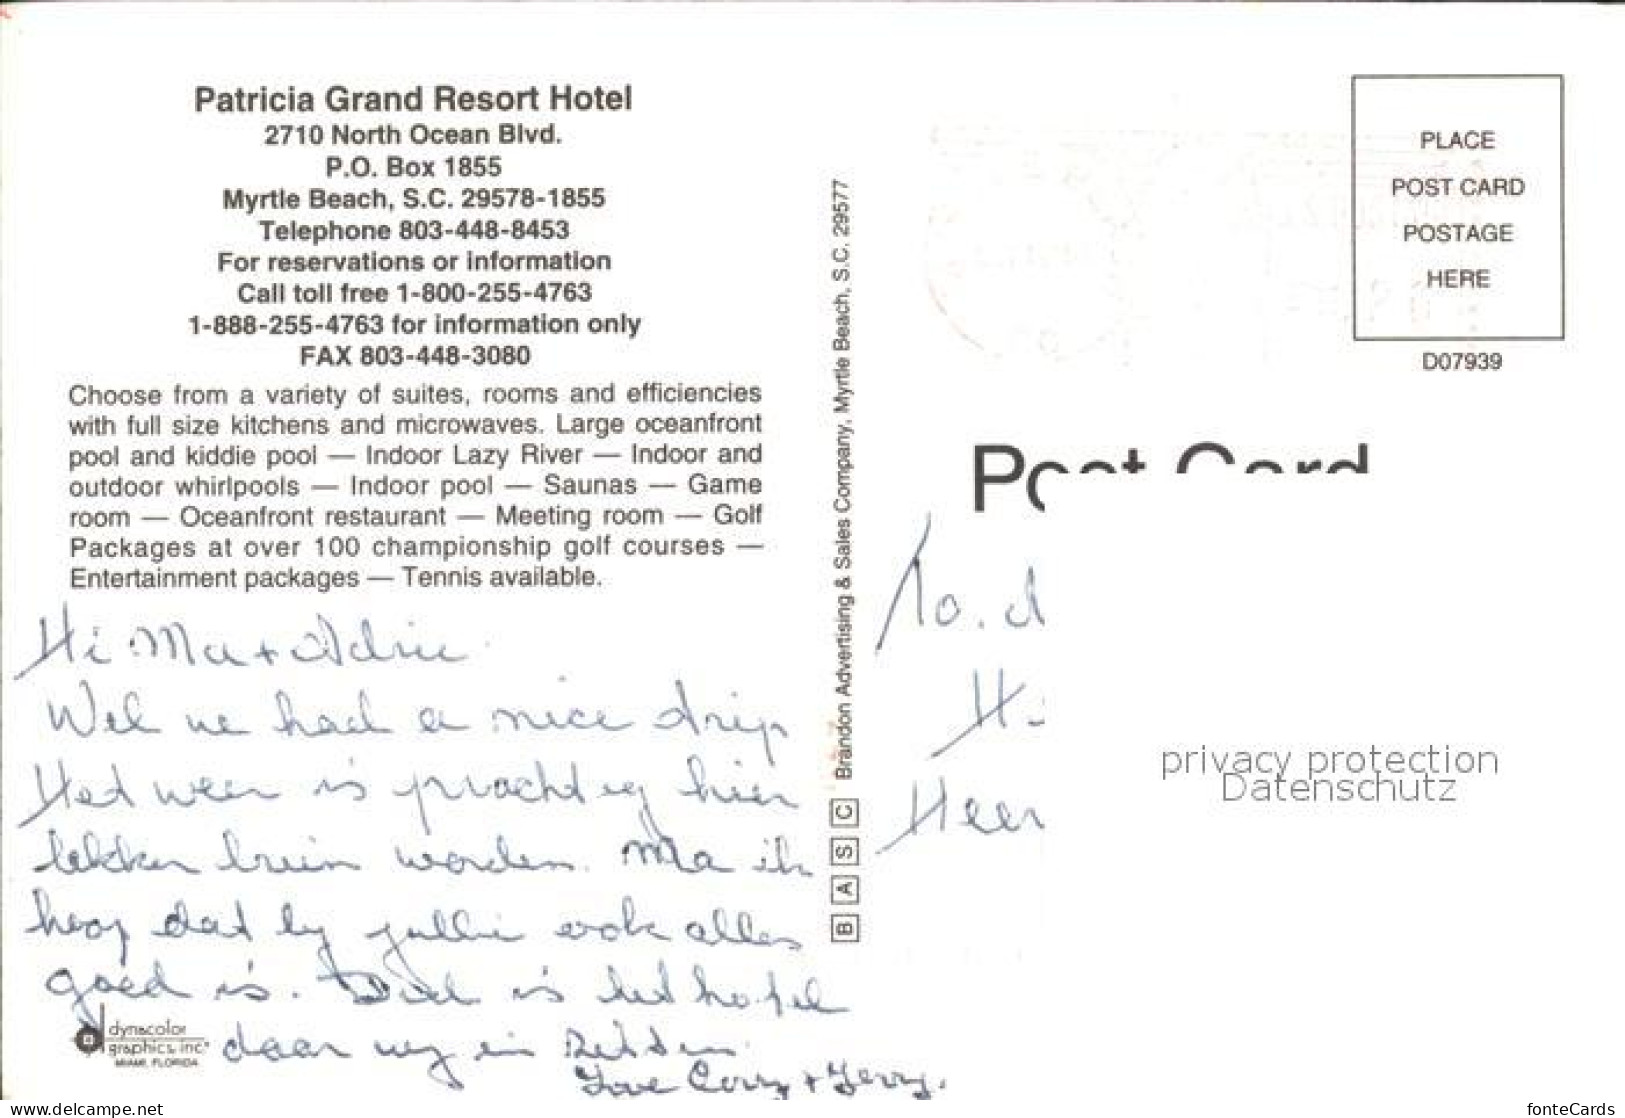 Patricia Grand Resort Hotel
2710 North Ocean Blvd.
P.O. Box 1855
Myrtle Beach, S.C. 29578-1855
Telephone 803-448-8453
For reservations or information
Call toll free 1-800-255-4763
1-888-255-4763 for information only
FAX 803-448-3080
Choose from a variety of suites, rooms and efficiencies
with full size kitchens and microwaves. Large oceanfront
pool and kiddie pool — Indoor Lazy River — Indoor and
outdoor whirlpools — Indoor pool — Saunas — Game
room — Oceanfront restaurant — Meeting room — Golf
Packages at over 100 championship golf courses —
Entertainment packages — Tennis available.
Hi Ma + Adrie
Wel we had a nice drip
Het weer is prachteg hier
lekker bruin worden. Ma ik
hoop dat by jullie ook alles
goed is. Dit is het hotel
daar wy in zitten.
Love Corry + Gerry.
dynacolor
graphics, inc.
MIAMI, FLORIDA
B A S C Brandon Advertising & Sales Company, Myrtle Beach, S.C. 29577
PLACE
POST CARD
POSTAGE
HERE
D07939
Post Card
To. d
H.
Heer
privacy protection
Datenschutz
www.delcampe.net
fonteCards